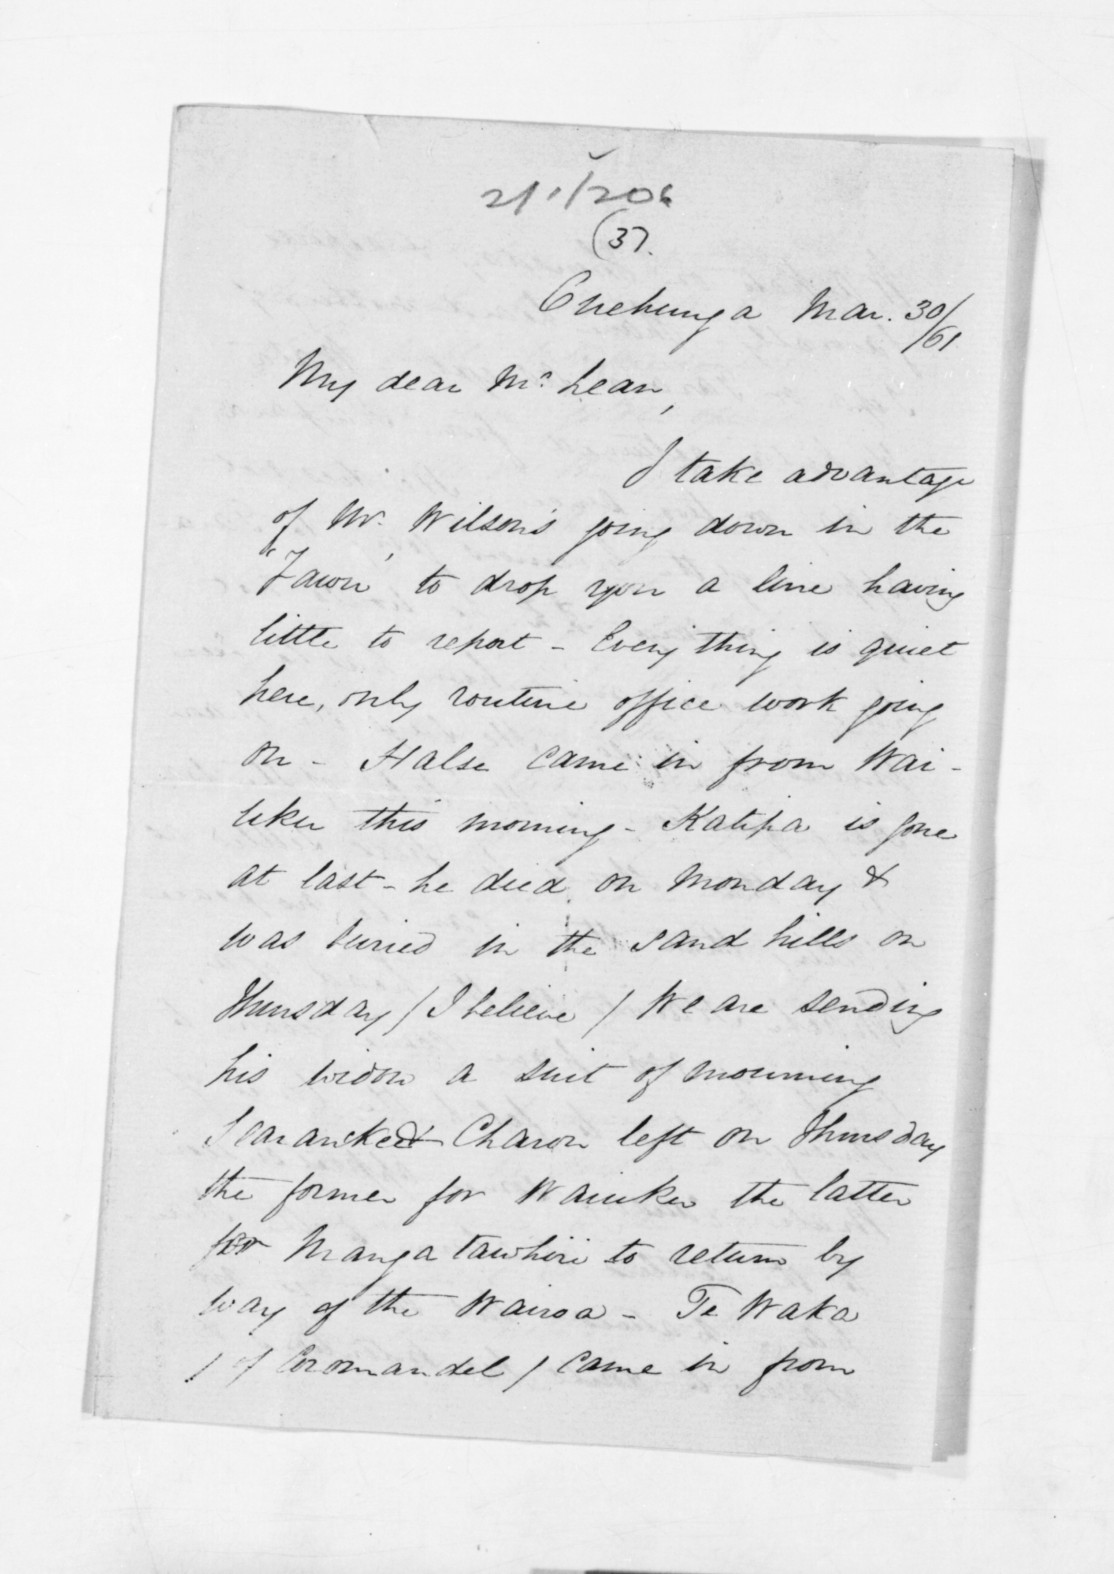 21/1/206
(37.
Onehunga Mar. 30/61
My dear Mc Lean,
I take advantage
of Mr. Wilson's going down in the
"Fawn" to drop you a line having
little to report - Every thing is quiet
here, only routine office work going
on - Halse came in from Wai-
uku this morning - Katipa is gone
at last - he died on Monday &
was buried in the sand hills on
Thursday / I believe / We are sending
his widow a suit of mourning
Searancke & Charon left on Thursday
the former for Waiuku the latter
for Mangatawhiri to return by
way of the Wairoa - Te Waka
/ of Coromandel / came in from